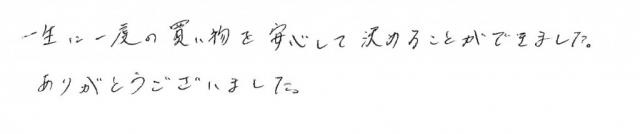 一生に一度の買い物を安心して決めることができました。
ありがとうございました。